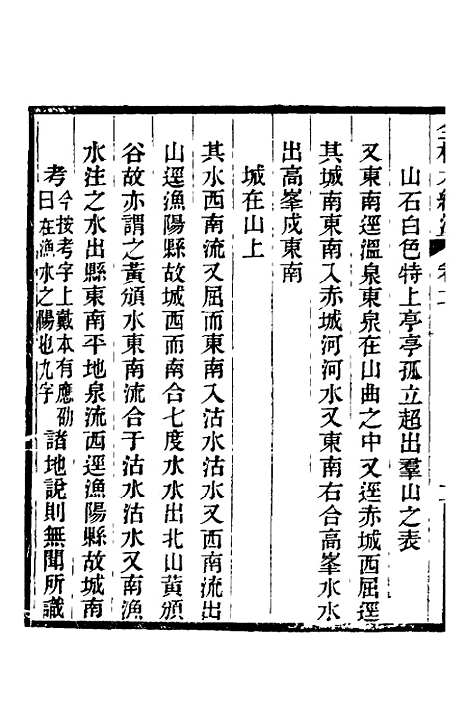 山石白色特上亭亭孤立超出羣山之表
又東南逕溫泉東泉在山曲之中又逕赤城西屈逕
其城南東南入赤城河河水又東南右合高峯水水
出高峯戍東南
城在山上
其水西南流又屈而東南入沽水沽水又西南流出
山逕漁陽縣故城西而南合七度水水出北山黃頒
谷故亦謂之黃頒水東南流合于沽水沽水又南漁
水注之水出縣東南平地泉流西逕漁陽縣故城南
考今按考字上戴本有應劭曰在漁水之陽也九字諸地說則無聞所識